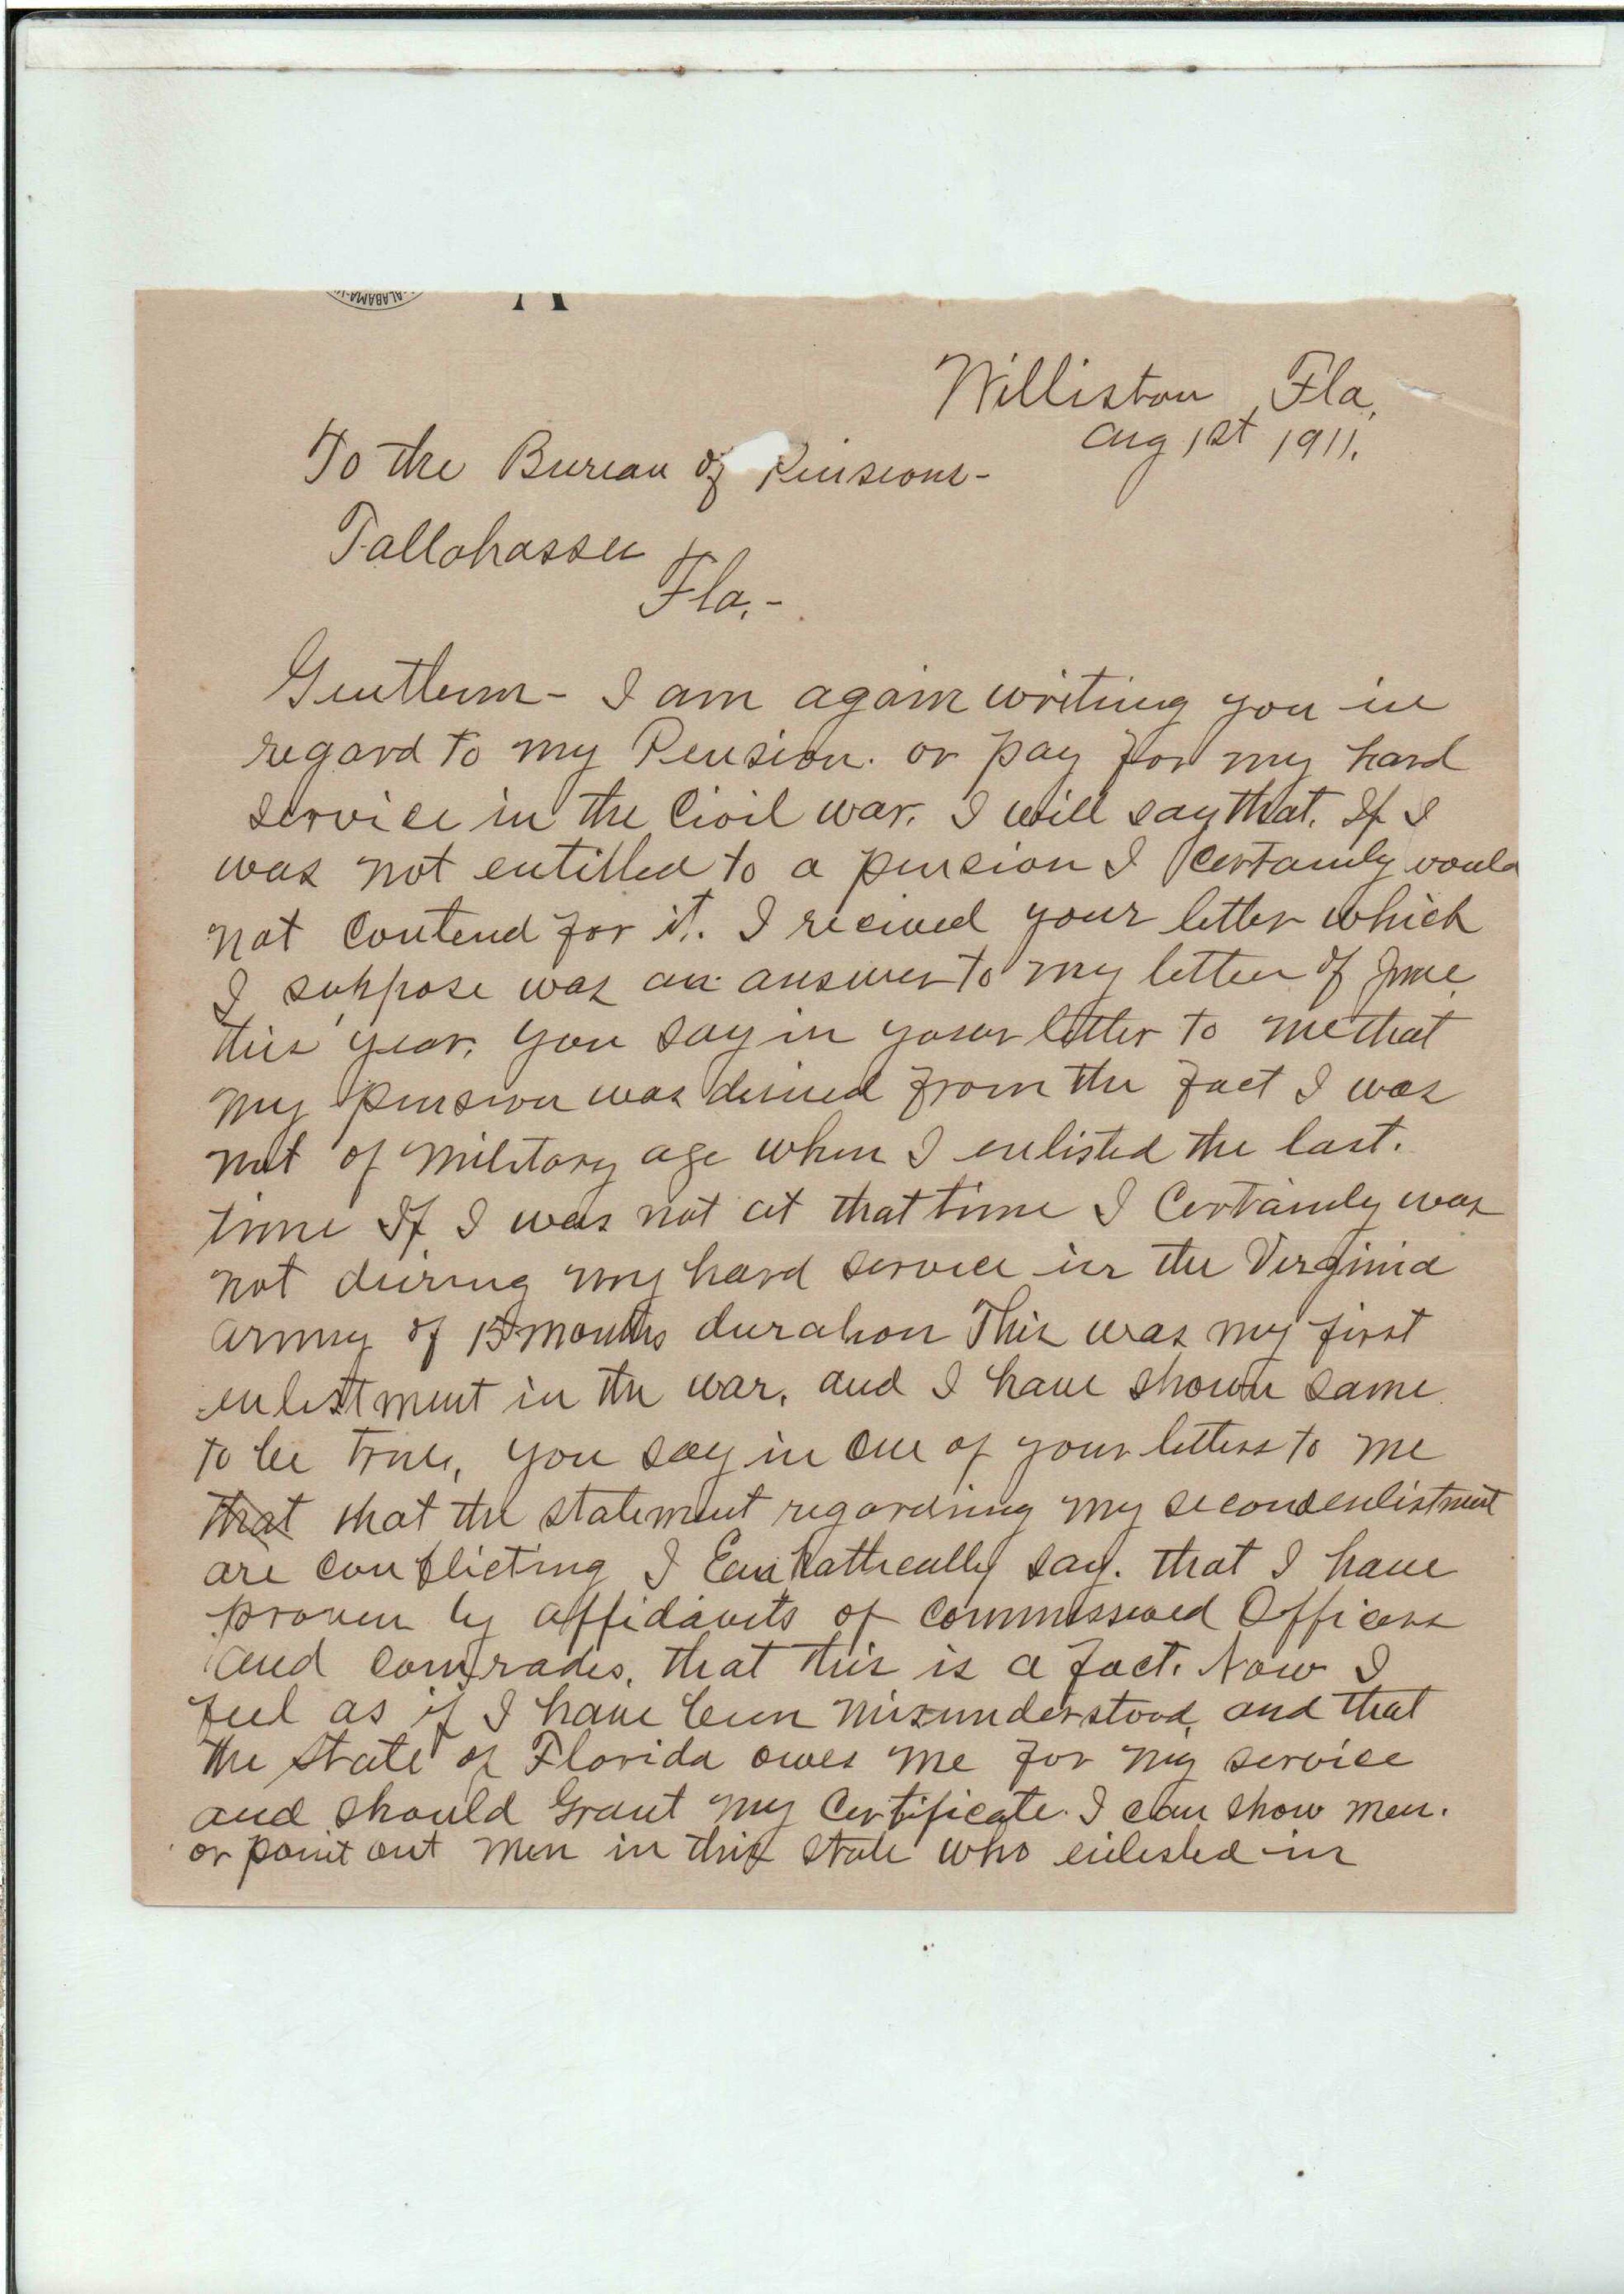 ALABAMA
Williston, Fla,
Aug 1st 1911.
To the Bureau of Pensions-
Tallahassee
Fla.-
Gentlemn- I am again writing you in
regard to my Pension. or pay for my hard
service in the Civil war. I will say that. If I
was not entitled to a pension I certainly would
not contend for it. I recived your letter which
I suppose was an answer to my letter of June
this year. you say in your letter to me that
my pension was denied from the fact I was
not of military age when I enlisted the last.
time If I was not at that time I Certainly was
not during my hard service in the Virginia
army of 15 months duration This was my first
enlistment in the war. and I have shown same
to be true, you say in one of your letters to me
that that the statement regarding my second enlistment
are conflicting I Emphattically say. that I have
proven by affidavits of commissioed Officers
and comrades, that this is a fact. Now I
feel as if I have been misunderstood, and that
the State of Florida owes me for my service
and should Grant my Certificate. I can show men.
or point out men in this state who enlisted in